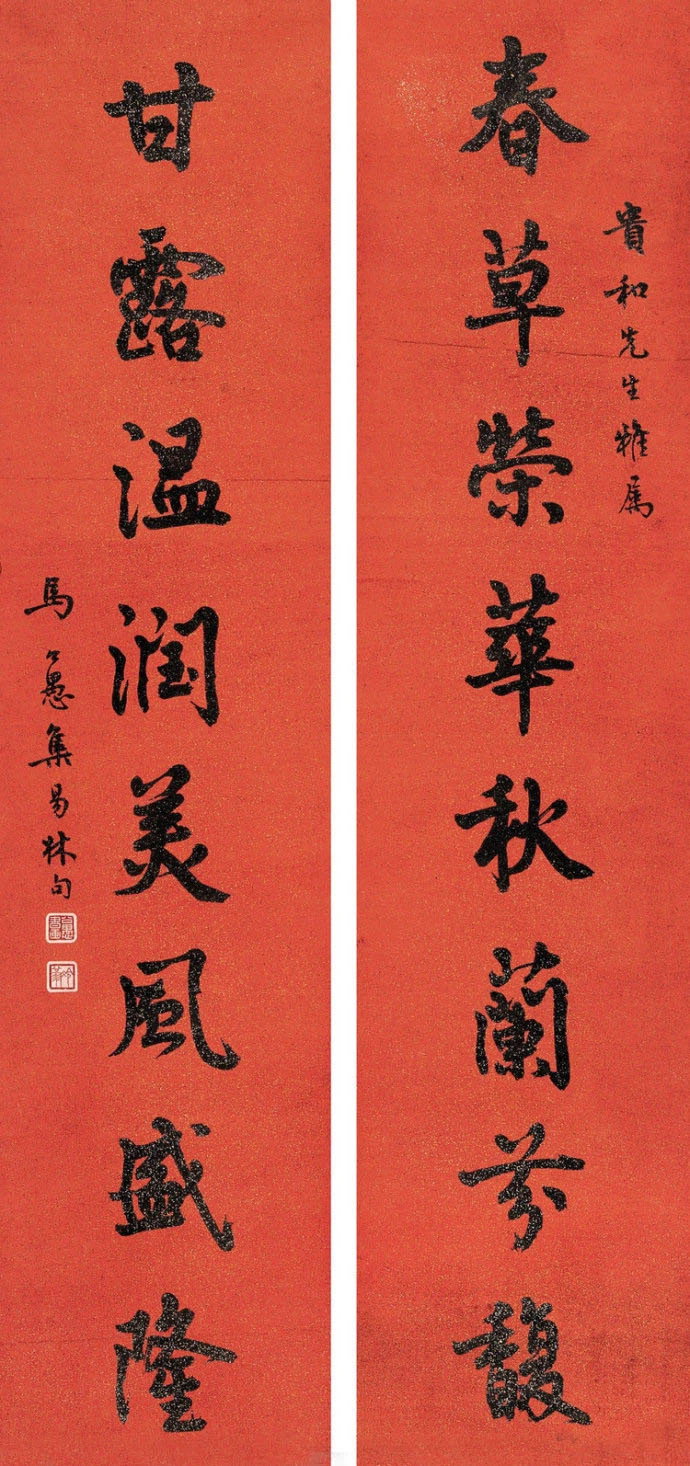 貴和先生雅属
春草榮華秋蘭芬馥
甘露温润美風盛隆
馬公愚集易林句